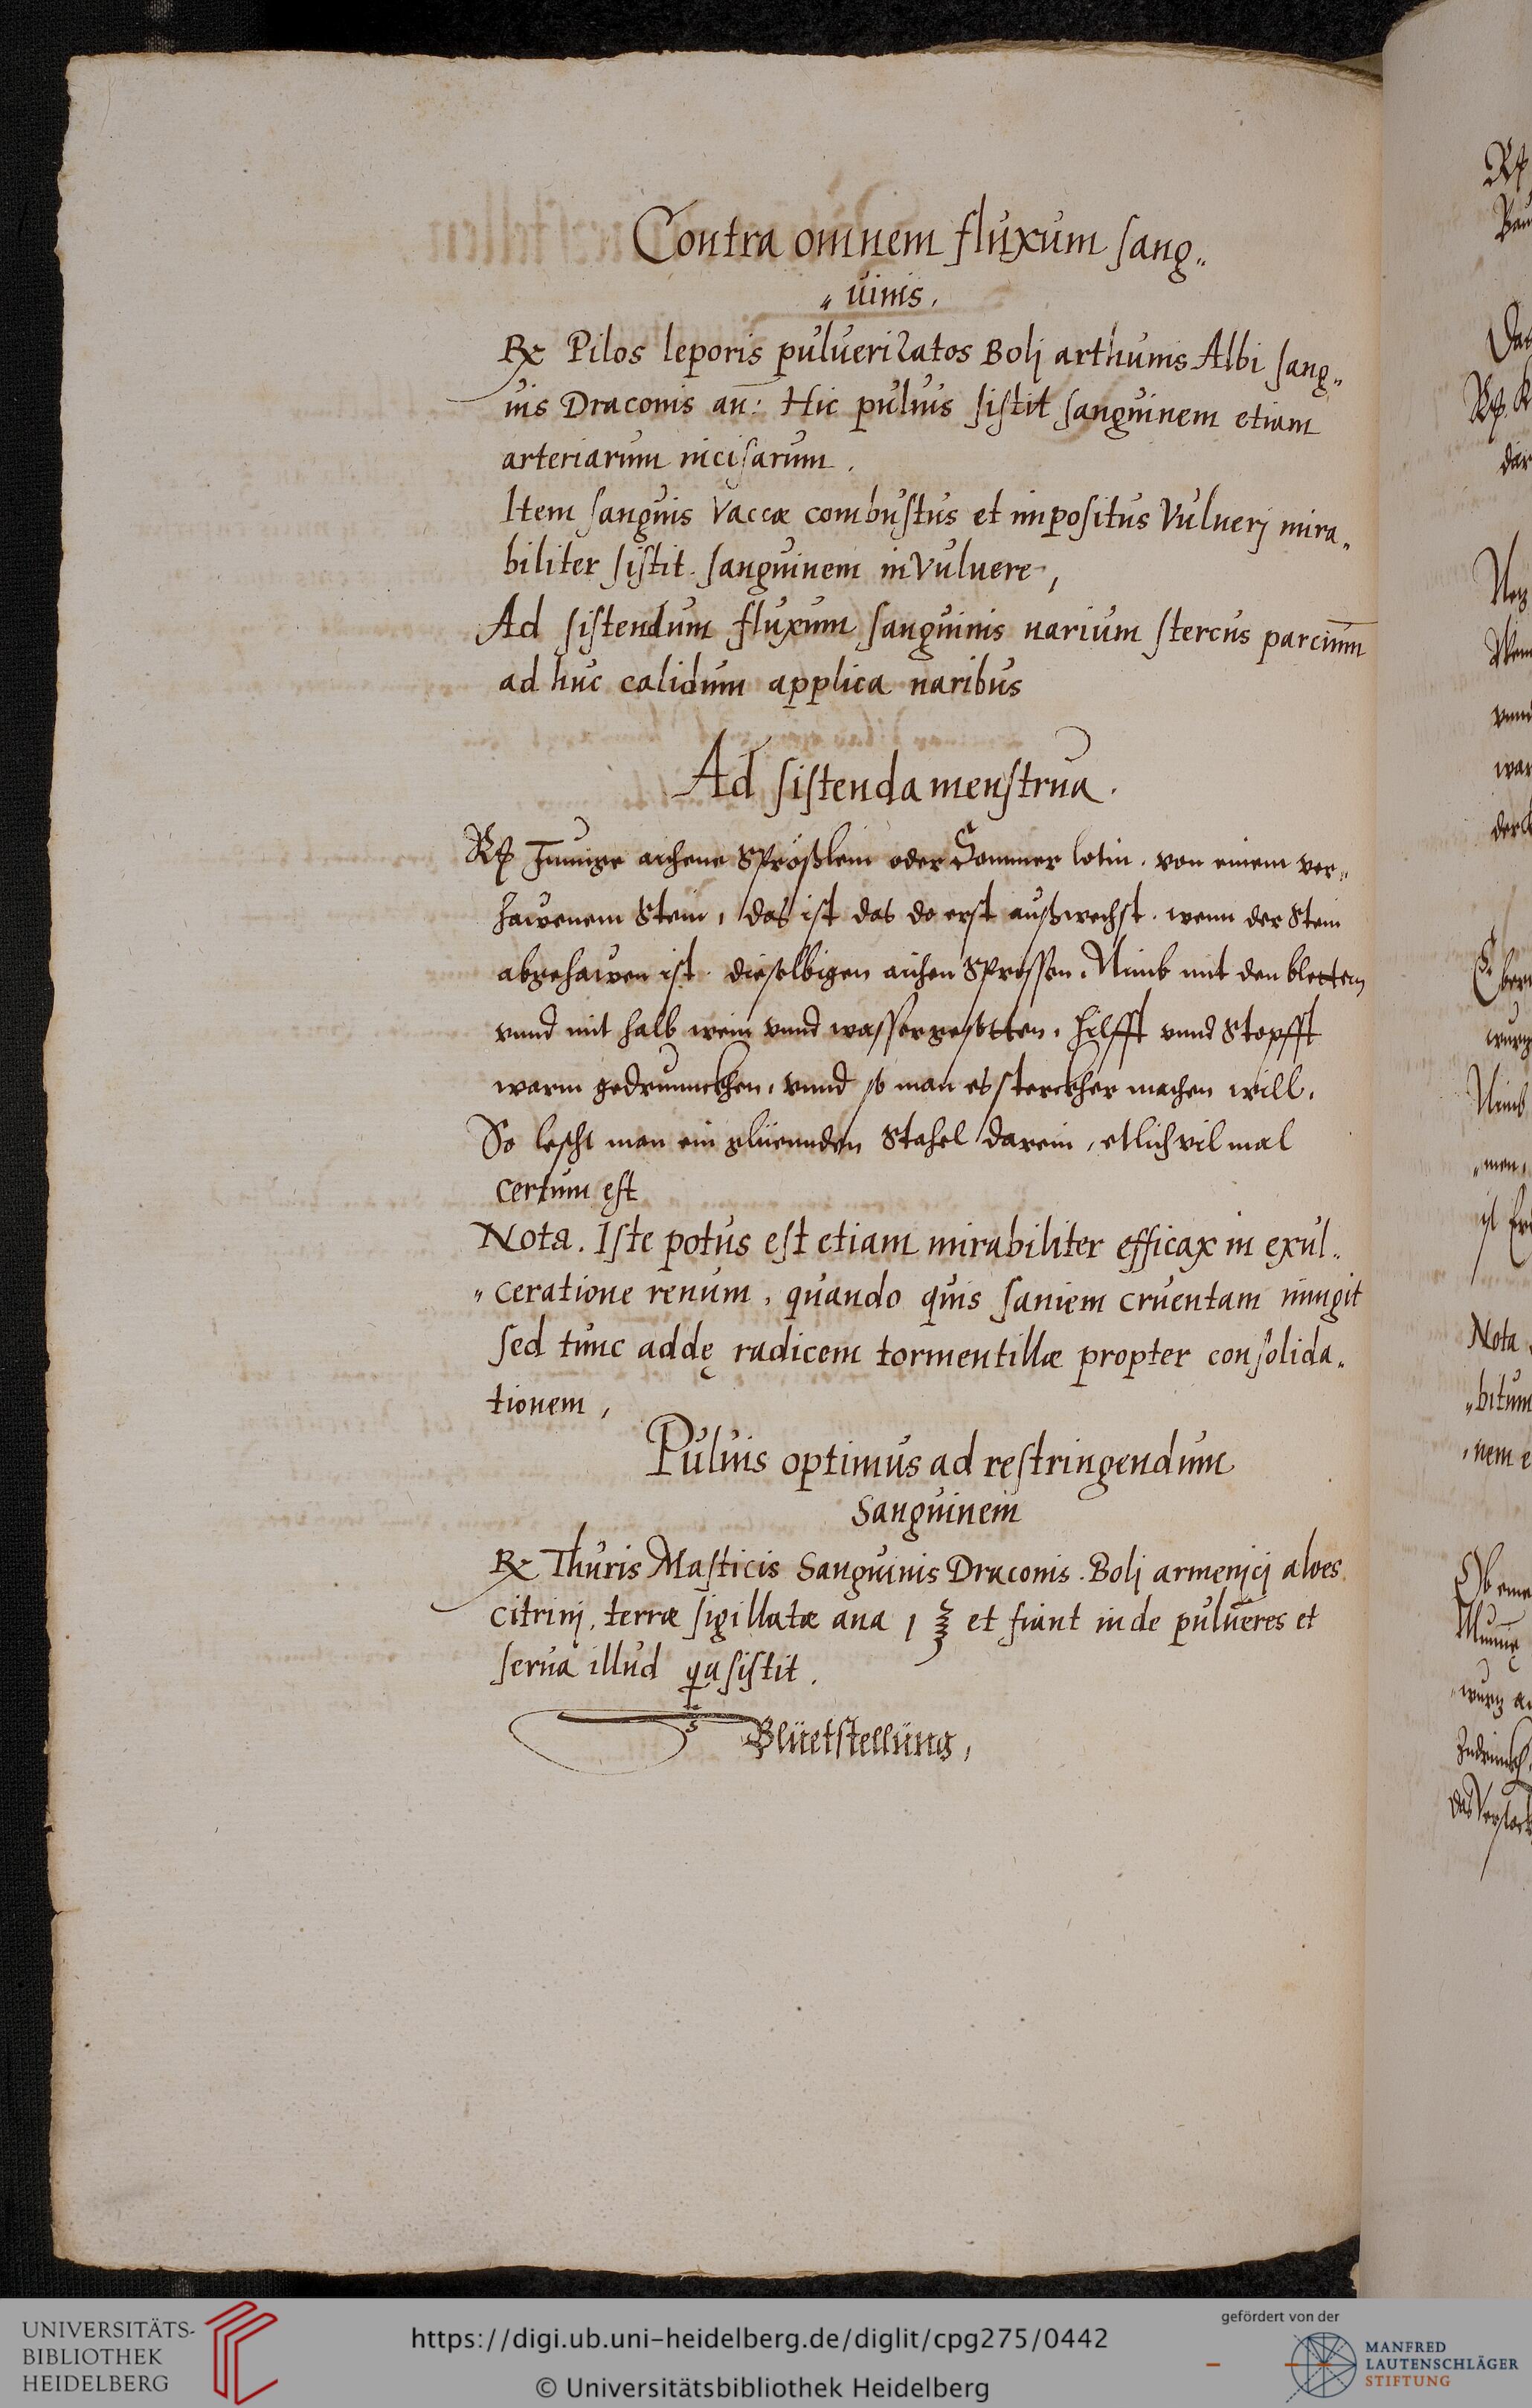 Contra omnem fluxum sang„
„uinis,
Rx Pilos leporis pulueriZatos Bolj arthunis Albi sang„
uis Draconis an: Hic puluis sistit sanguinem etiam
arteriarum incisarum.
Item sanguis Vaccæ combustus et impositus Vulnerj mira„
biliter sistit. sanguinem in Vulnere,
Ad sistendum fluxum sanguinis narium stercus parcinum
ad huc calidum applica naribus
Ad sistenda menstrua.
Rp Junnge aichene Sprößlein oder Sommer lotin. von einem ver„
hawenem Stein, das ist das do erst außwechst. wenn der Stein
abgehawen ist. dieselbigen aichen Sprossen. Nimb mit den blettern
vnnd mit halb wein vnnd wasser gesotten, hilfft vnnd Stopfft
warm gedrunnckhen, vnnd so man es sterckher machen will,
So lescht man ein glüennden Stahel darein, etlich vil mal
certum est
Nota. Iste potus est etiam mirabiliter efficax in exul„
„ceratione renum, quando quis saniem cruentam mingit
sed tunc addę radicem tormentillæ propter consolida„
tionem,
Puluis optimus ad restringendum
Sanguinem
Rx Thuris Masticis Sanguinis Draconis. Bolj armenicj aloes
citrinj, terræ sigillatæ ana 1 ℥ et fiant inde pulueres et
serua illud qa sistit.
Blüetstellüng,
Rp
Nota
„bitum
„nem e
Nimb
„men,
wurtz
UNIVERSITÄTS-
BIBLIOTHEK
HEIDELBERG
https://digi.ub.uni-heidelberg.de/diglit/cpg275/0442
© Universitätsbibliothek Heidelberg
gefördert von der
MANFRED
LAUTENSCHLÄGER
STIFTUNG